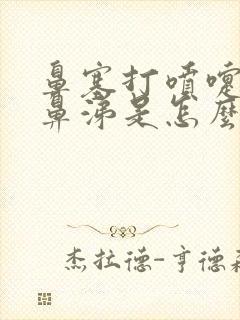 鼻塞打喷嚏
鼻涕是怎麼
杰拉德-亨德森